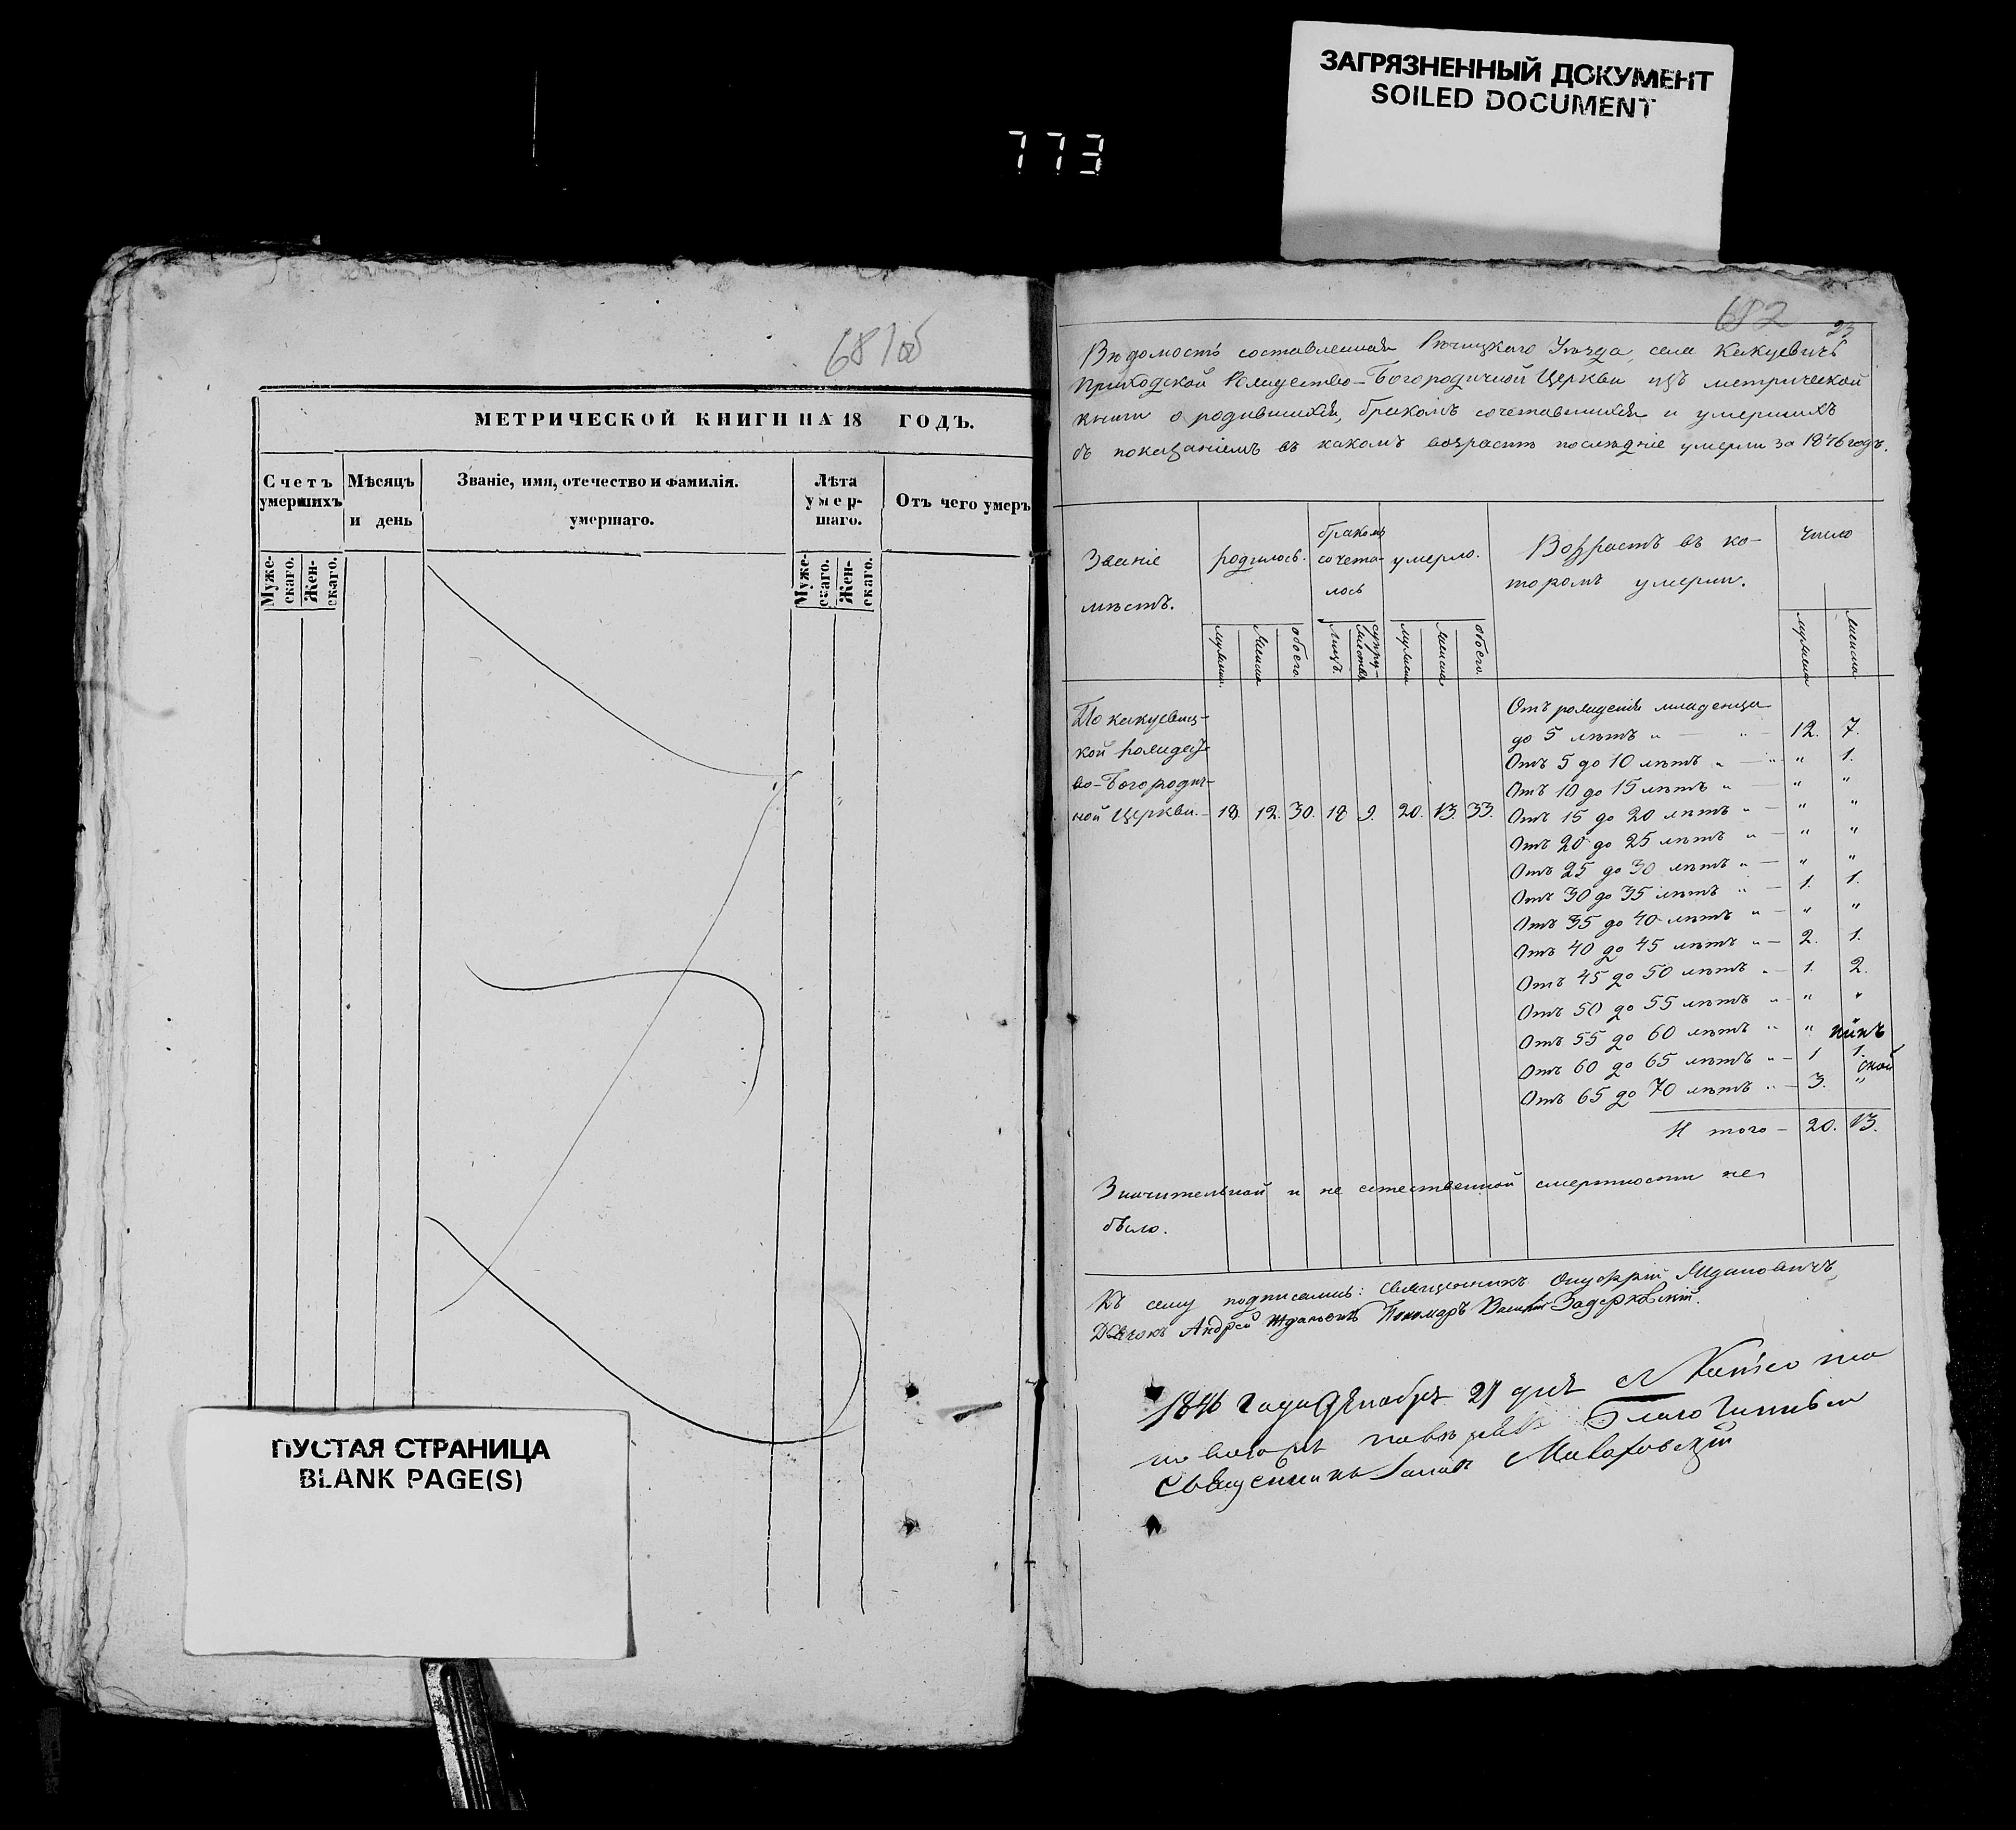 ЗАГРЯЗНЕННЫЙ ДОКУМЕНТ
SOILED DOCUMENT
773
681об
МЕТРИЧЕСКОЙ КНИГИ НА 18 ГОДЪ.
Счетъ умершихъ
Мѣсяцъ и день
Званіе, имя, отечество и фамилія.
умершаго.
Лѣта умер-
шаго.
Отъ чего умеръ
Муже-
скаго.
Жен-
скаго.
Муже-
скаго.
Жен-
скаго.
ПУСТАЯ СТРАНИЦА
BLANK PAGE(S)
682
23
Вѣдомость составленная Рѣчицкаго Уѣзда, села Какуевичь
Приходской Рождество-Богородичной Церкви изъ метрической
книги о родившихся, бракомъ сочетавшихся и умершихъ
съ показаніемъ въ какомъ возрастѣ послѣдніе умерли за 1846 годъ.
Званіе
мѣстъ.
родилось.
бракомъ
сочета-
лось
умерло.
Возрастъ въ ко-
торомъ умерли.
Число
мужеска.
женска
обоего
лицъ.
супру-
жествъ
мужеска
женска
обоего.
мужеска
женска
По какуевиц-
кой рождест-
во-Богородич-
ной Церкви. 18. 12. 30. 18 9. 20. 13. 33.
Отъ рожденія младенца
до 5 лѣтъ „ — „ — 12. 7.
Отъ 5 до 10 лѣтъ „ — „ „ 1.
Отъ 10 до 15 лѣтъ „ — „ „
Отъ 15 до 20 лѣтъ „ — „ „
Отъ 20 до 25 лѣтъ „ — „ „
Отъ 25 до 30 лѣтъ „ — „ „
Отъ 30 до 35 лѣтъ „ — 1. 1.
Отъ 35 до 40 лѣтъ „ — „ „
Отъ 40 до 45 лѣтъ „ — 2. 1.
Отъ 45 до 50 лѣтъ „ — 1. 2.
Отъ 50 до 55 лѣтъ „ — „ „
Отъ 55 до 60 лѣтъ „ „ „
минъ
Отъ 60 до 65 лѣтъ „ — 1 1.
ской
Отъ 65 до 70 лѣтъ „ — 3. „
И того — 20. 13.
Значительной и не естественной смертности не
было.
Къ сему подписались: Священникъ Онуфрій Ждановичъ,
Дьячокъ Андрей Ждановичъ Пономаръ Василій Задерковскій.
1846 года Декабря 27 дня
Благочинный
Священникъ